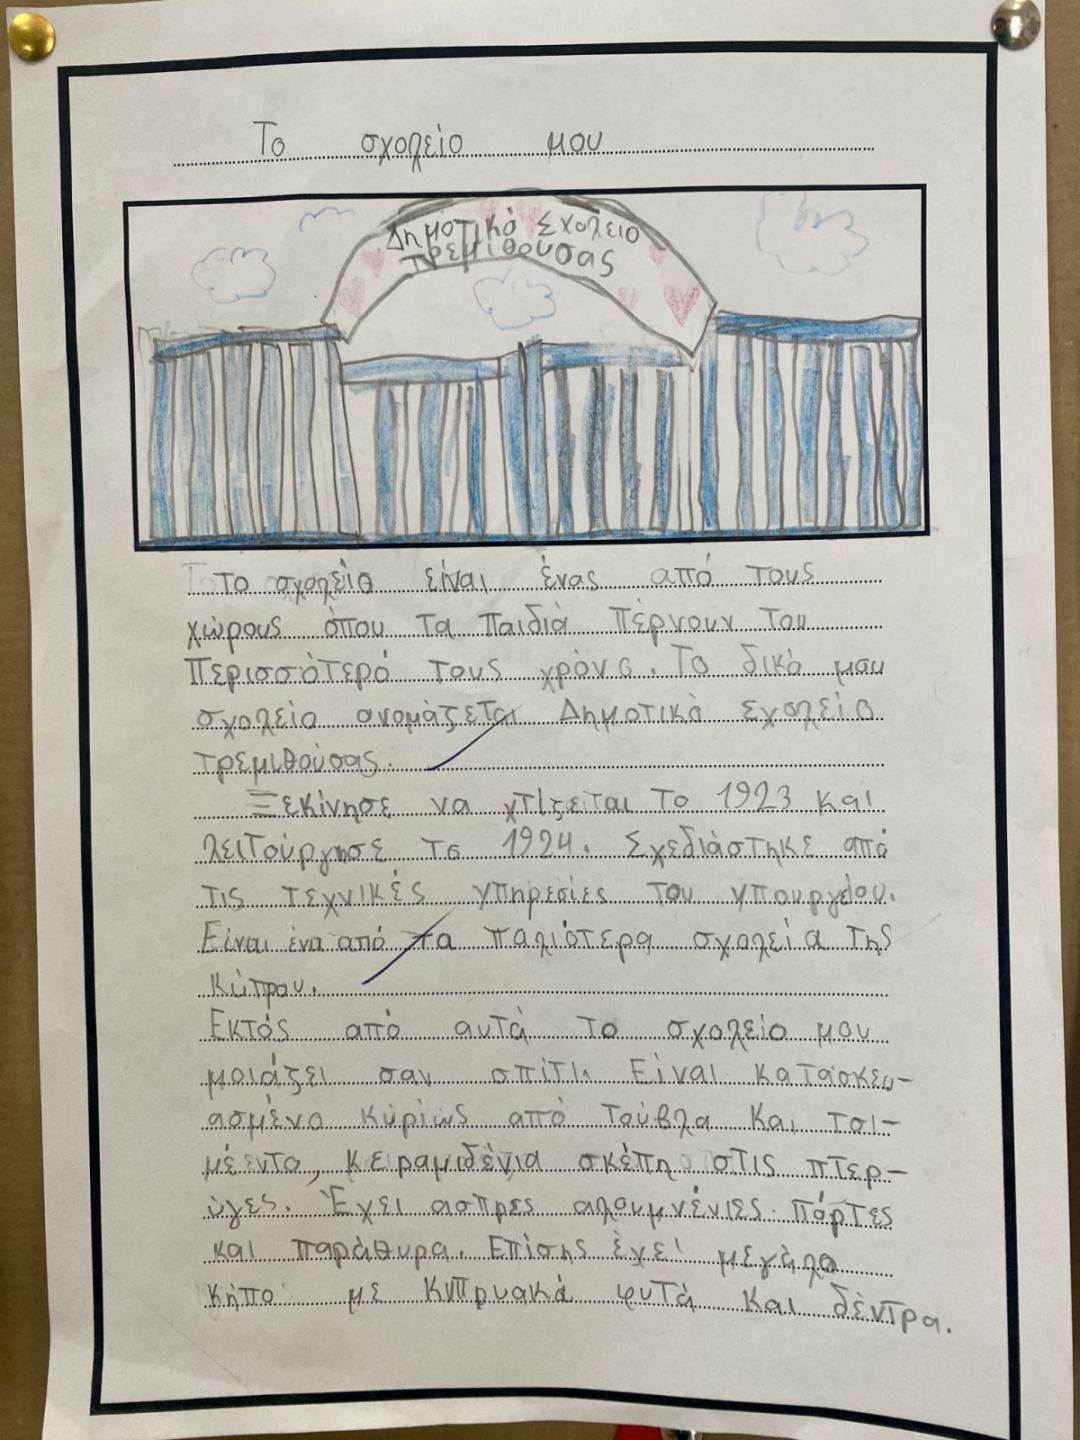 Το σχολείο μου
Δημοτικό Σχολείο
Τρεμιθουσας
Το σχολείο είναι ένας από τους
χώρους όπου τα παιδιά πέρνουν του
περισσότερό τους χρόνο. Το δικό μου
σχολείο ονομάζεται Δημοτικό Σχολείο
Τρεμιθούσας.
Ξεκίνησε να χτίζεται το 1923 και
λειτούργησε το 1924. Σχεδιάστηκε από
τις τεχνικές υπηρεσίες του υπουργείου.
Είναι ένα από τα παλιότερα σχολεία της
Κύπρου.
Εκτός από αυτά το σχολείο μου
μοιάζει σαν σπίτι. Είναι κατασκευ-
ασμένο κύρίως από τούβλα και τσι-
μέντο, κεραμιδένια σκέπη στις πτερ-
ύγες. Έχει άσπρες αλουμνένιες πόρτες
και παράθυρα. Επίσης έχει μεγάλο
κήπο με κυπρυακά φυτά και δέντρα.